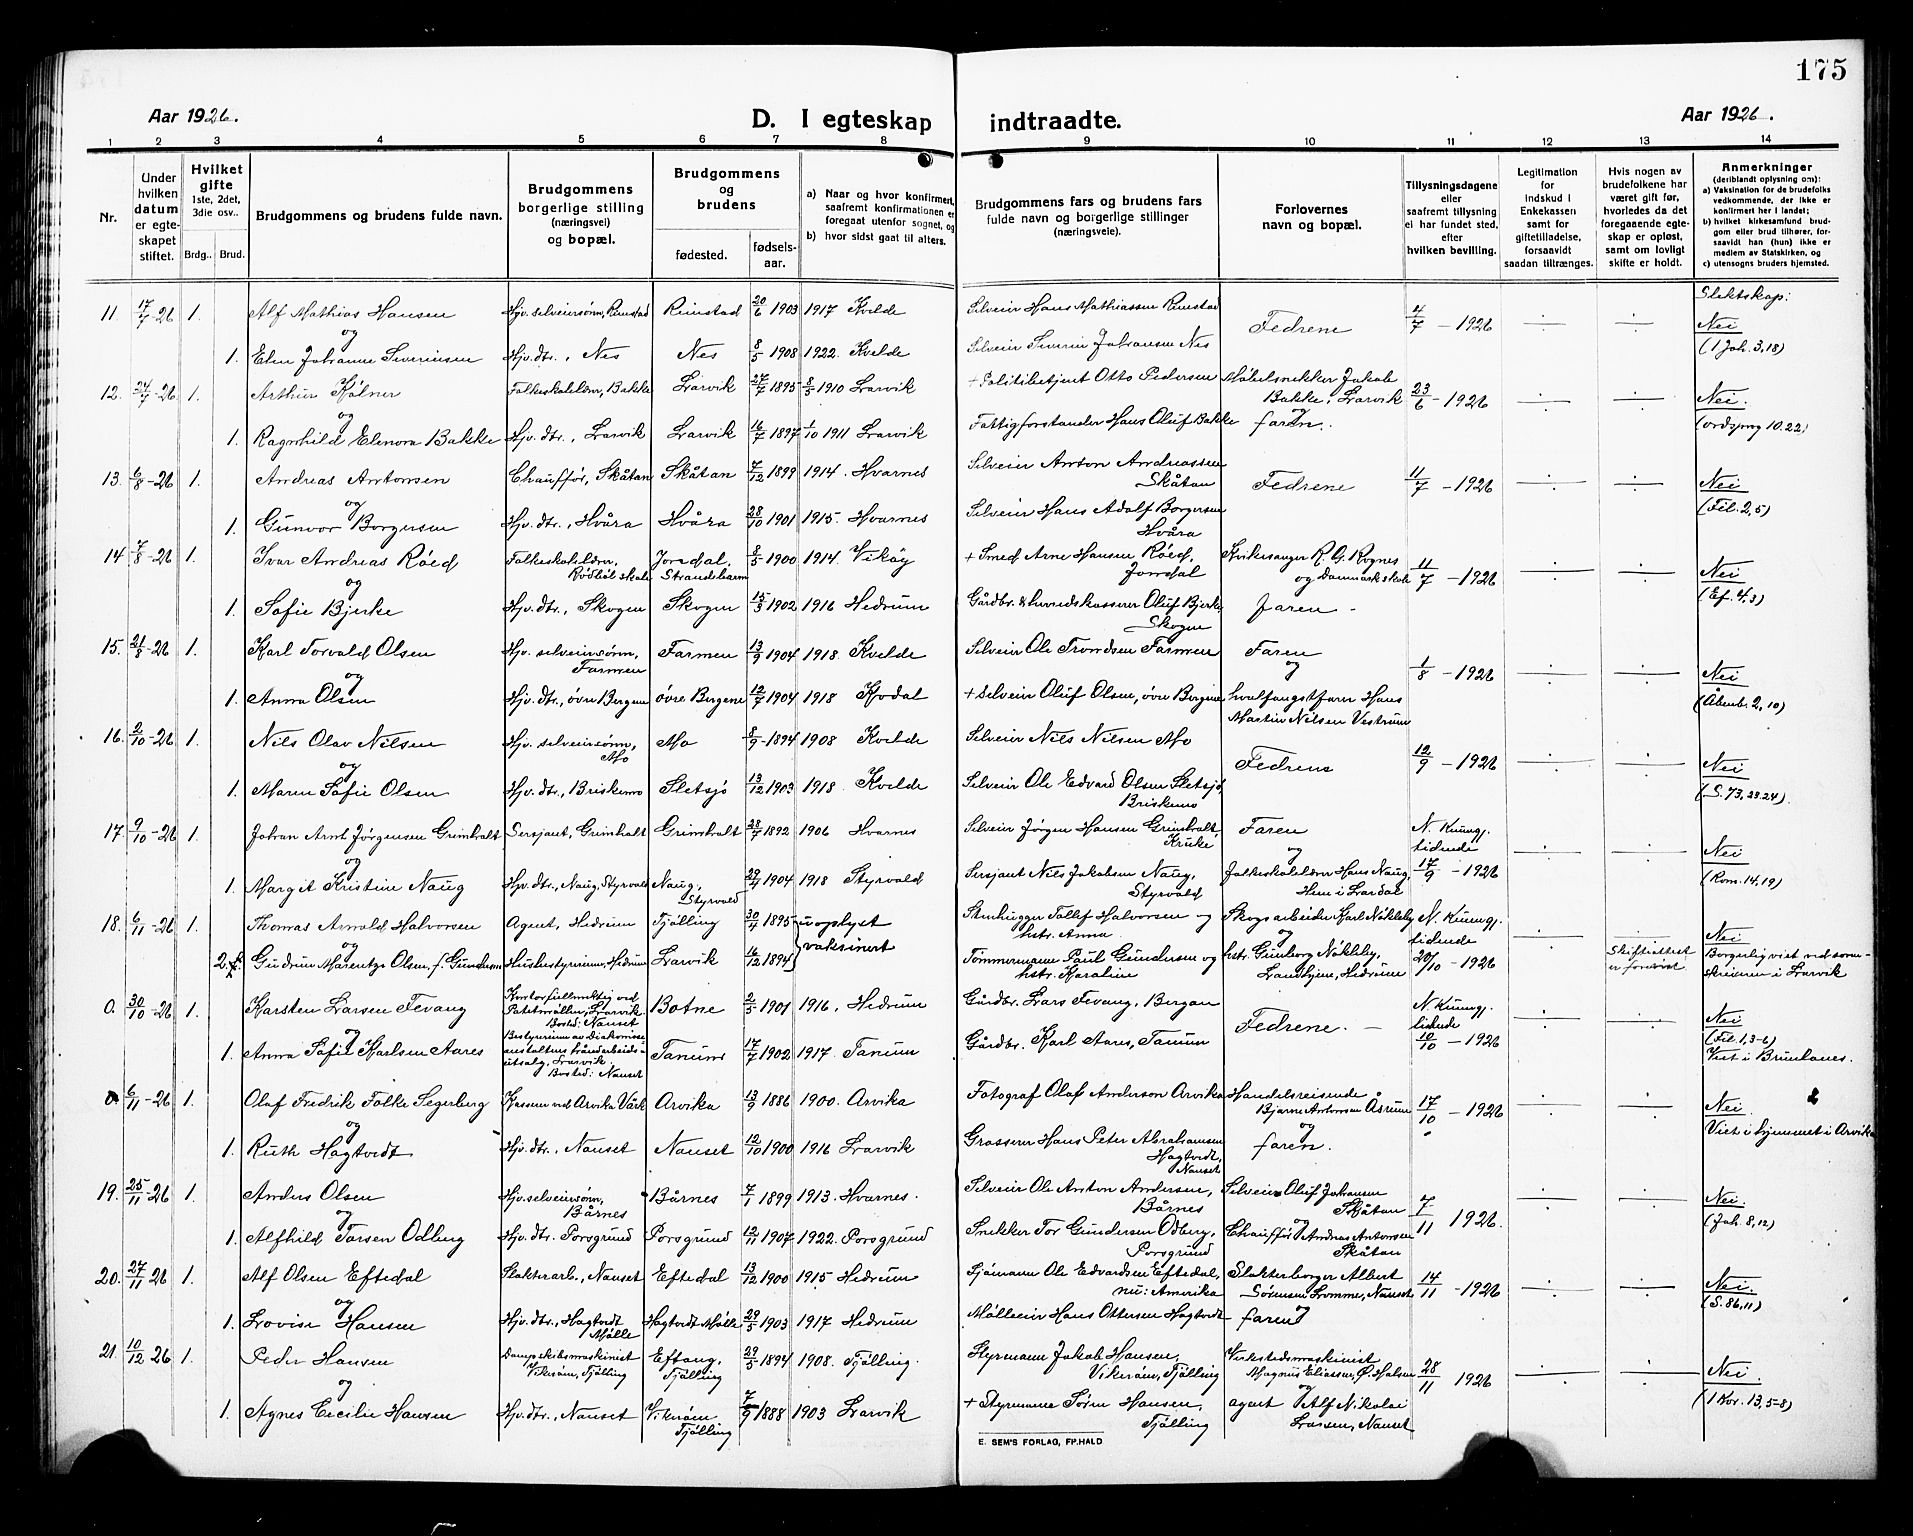 175
Aar 1926.
D. I egteskap indtraadte.
Aar 1926.
1 2 3 4 5 6 7 8 9 10 11 12 13 14
Nr.
Under hvilken datum er egteskapet stiftet.
Hvilket gifte 1ste, 2det, 3die osv..
Brdg.. Brud.
Brudgommens og brudens fulde navn.
Brudgommens borgerlige stilling (næringsvei) og bopæl.
Brudgommens og brudens
fødested. fødsels-aar.
a) Naar og hvor konfirmert, saafremt konfirmationen er foregaat utenfor sognet, og
b) hvor sidst gaat til alters.
Brudgommens fars og brudens fars fulde navn og borgerlige stillinger (næringsveie).
Forlovernes navn og bopæl.
Tillysningsdagene eller saafremt tillysning ei har fundet sted, efter hvilken bevilling.
Legitimation for indskud i Enkekassen samt for giftetilladelse, forsaavidt saadan tiltrænges.
Hvis nogen av brudefolkene har været gift før, hvorledes da det foregaaende egteskap er opløst, samt om lovligt skifte er holdt.
Anmerkninger (deriblandt oplysning om):
a) Vaksination for de brudefolks vedkommende, der ikke er konfirmert her i landet;
b) hvilket kirkesamfund brudgom eller brud tilhører, forsaavidt han (hun) ikke er medlem av Statskirken, og
c) utensogns bruders hjemsted.
11. 17/7-26 1. Alf Mathias Hansen Hjv. selveiersønn, Rimstad Rimstad 20/6 1903 1917 Kvelde Selveier Hans Mathiassen Rimstad Fedrene 4/7 - 1926 Slektskap: Nei
og
1. Elen Johanne Severinsen Hjv. dtr., Nes Nes 8/5 1908 1922. Kvelde Selveier Severin Johansen Nes (1 Joh. 3,18)
12. 24/7-26 1. Arthur Kjølner Folkeskolelærer, Bakke Larvik 27/7 1895 8/5 1910 Larvik + Politibetjent Otto Pedersen Møbelsnekker Jakob Bakke, Larvik 23/6 - 1926 Nei.
og
1. Ragnhild Elenora Bakke Hjv. dtr., Larvik Larvik 16/7 1897 1/10 1911 Larvik Fattigforstander Hans Oluf Bakke faren. (ordsprog 10.22)
13. 6/8-26 1. Andreas Antonsen Chauffør, Skåtan Skåtan 7/12 1899 1914. Hvarnes Selveier Anton Andreassen Skåtan Fedrene 11/7 - 1926 Nei
og
1. Gunvor Borgersen Hjv. dtr., Hvåra Hvåra 28/10 1901 1915. Hvarnes Selveier Hans Adolf Borgersen Hvåra (Fil. 2,5)
14 7/8-26 1. Ivar Andreas Röed Folkeskolelærer, Rødbøl skole Jondal, Strandebarm 8/5 1900 1914. Vikøy + Smed Arne Hansen Röed, Jondal Kirkesanger R. G. Rognes og Danmark skole 11/7 - 1926 Nei
og
1. Sofie Bjerke Hjv. dtr., Skogen Skogen 15/5 1902 1916 Hedrum Gårdbr. & herredskasserer Oluf Bjerke, Skogen Faren - (Ef. 4,3)
15. 21/8-26 1. Karl Torvald Olsen Hjv. selveiersønn, Farmen Farmen 13/9 1904 1918. Kvelde Selveier Ole Trondsen Farmen Faren og 1/8 - 1926 Nei
og
1. Anna Olsen Hjv. dtr., øvre Bergene øvre Bergene 12/7 1904 1918 Kodal + Selveier Oluf Olsen, øvre Bergene hvalfangstfarer Hans Martin Nilsen Vestrum (Åbenb. 2,10)
16. 2/10-26 1. Nils Olav Nilsen Hjv. selveiersønn, Mo Mo 8/9-1894 1908 Kvelde Selveier Nils Nilsen Mo Fedrene 12/9 - 1926 Nei
og
1. Maren Sofie Olsen Hjv. dtr., Briskemo Sletsjø 13/12 1903 1918. Kvelde Selveier Ole Edvard Olsen Sletsjø, Briskemo (S. 73, 23.24)
17. 9/10-26 1. Johan Arnt Jørgensen Grimholt Sersjant, Grimholt Grimholt 28/7 1892 1906 Hvarnes Selveier Jørgen Hansen Grimholt, Kruke Faren og N. Kunngj. tidende Nei
og
1. Margit Kristine Naug Hjv. dtr., Naug, Styrvold Naug, Styrvold 29/4 1904 1918 Styrvold Sersjant Nils Jakobsen Naug, Styrvold Folkeskolelærer Hans Naug, Hem i Lardal 17/9 - 1926 (Rom. 14,19)
18. 6/11-26 1. Thomas Arnold Halvorsen Agent, Hedrum Tjølling 30/4 1895 uoplyst Stenhugger Tollef Halvorsen og hstr. Anna Skogsarbeider Karl Nökleby N. Kunngj. tidende Nei
og
2. f. Gudrun Marentze Olsen, f. Gundersen Husbestyrerinne, Hedrum Larvik 16/12 1894 vaksinert Tömmermann Paul Gundersen og hstr. Karoline hstr. Gunborg Nökleby, Landhjem, Hedrum 20/10 - 1926 Skifteattest er forevist Borgerlig viet ved sorenskriveren i Larvik
0. 30/10-26 1. Karsten Larsen Fevang Kontorfullmektig ved Patentmøllen, Larvik. Bosted: Nanset Botne 2/5 1901 1916, Hedrum Gårdbr. Lars Fevang, Bergan Fedrene. - N. Kunngj. tidende Nei
og
1. Anna Sofie Karlsen Aares Bestyrerinne av Diakonisseanstaltens håndarbeidsutsalg, Larvik. Bosted: Nanset Tanum 17/7 1902 1917. Tanum Gårdbr. Karl Aares, Tanum 10/10 - 1926 (Fil. 1,3-6) Viet i Brunlanes.
0. 6/11-26 1. Olaf Fredrik Folke Segerberg Kasserer ved Arvika Värk Arvika 13/9 1886 1900. Arvika Fotograf Olof Anderson Arvika Handelsreisende Bjarne Antonsen Åsrum 17/10 - 1926 Nei.
og
1. Ruth Hagtvedt Hjv. dtr., Nanset Nanset 12/10 1900 1916 Larvik Grosserer Hans Peter Abrahamsen Hagtvedt, Nanset og faren. Viet i hjemmet i Arvika
19. 25/11-26 1. Anders Olsen Hjv. selveiersønn, Bårnes Bårnes 7/1 1899 1913. Hvarnes. Selveier Ole Anton Andersen, Bårnes Selveier Oluf Johansen Skåtan 7/11 1926. Nei.
og
1. Alfhild Torsen Odberg Hjv. dtr. Porsgrund Porsgrund 12/11 1907 1922. Porsgrund Snekker Tor Gundersen Odberg, Porsgrund og Chauffør Andreas Antonsen Skåtan (Joh. 8,12)
20. 27/11 26 1. Alf Olsen Eftedal Slakterarb., Nanset Eftedal 13/12 1900 1915 Hedrum Sjömann Ole Edvardsen Eftedal, nu: Amerika Slakterborger Albert Sørensen Lromme, Nanset 14/11 - 1926 Nei.
og
1. Lovise Hansen Hjv. dtr., Hagtvedt Mølle Hagtvedt Mølle 29/5 1903 1917 Hedrum Mølleeier Hans Ottersen Hagtvedt og faren (S. 86,11)
21. 10/12 26 1. Peder Hansen Dampskibsmaskinist Vikerøen, Tjølling Eftang, Tjølling 29/5 1894 1908. Tjølling. Styrmann Jakob Hansen, Vikerøen, Tjølling Verkstedsmaskinist Magnus Eliassen, Ø. Halsen 28/11 1926 Nei.
og
1. Agnes Cecilie Hansen Hjv. dtr., Nanset Vikerøen, Tjølling 7/9 1888 1903 Larvik + Styrmann Søren Hansen, Tjølling og agent Alf Nikolai Larssen, Nanset (1 Kor. 13,5-8)
E. SEM'S FORLAG, FP.HALD